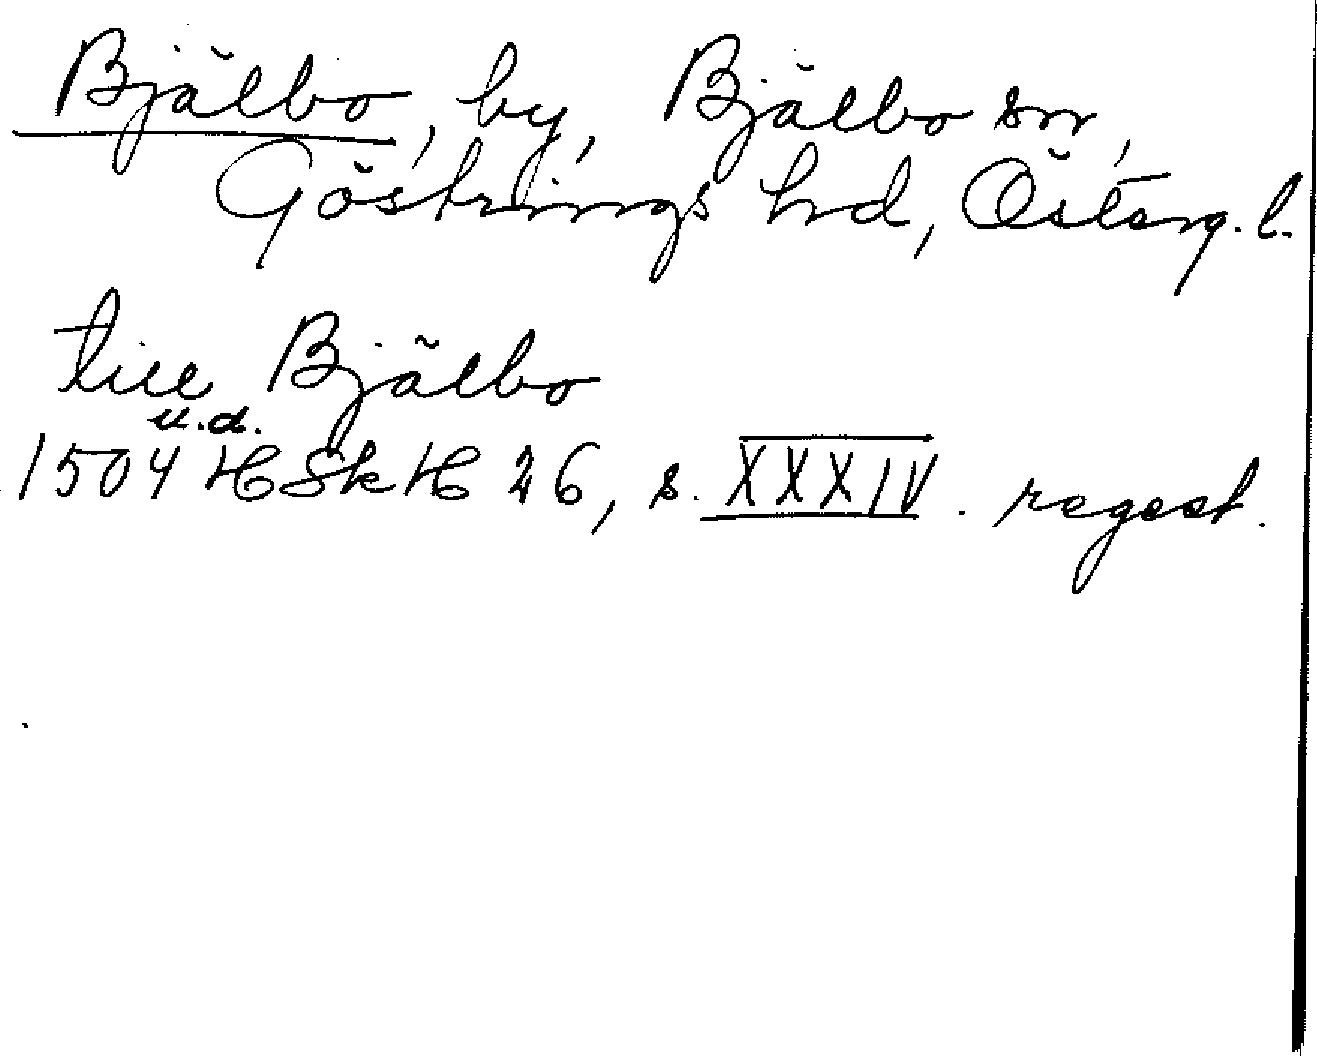 Bjälbo, by, Bjälbo sn,
Göstrings hd, Österg. l.
till Bjälbo
u.d.
1504 HSkH 26, s. XXXIV. regest.